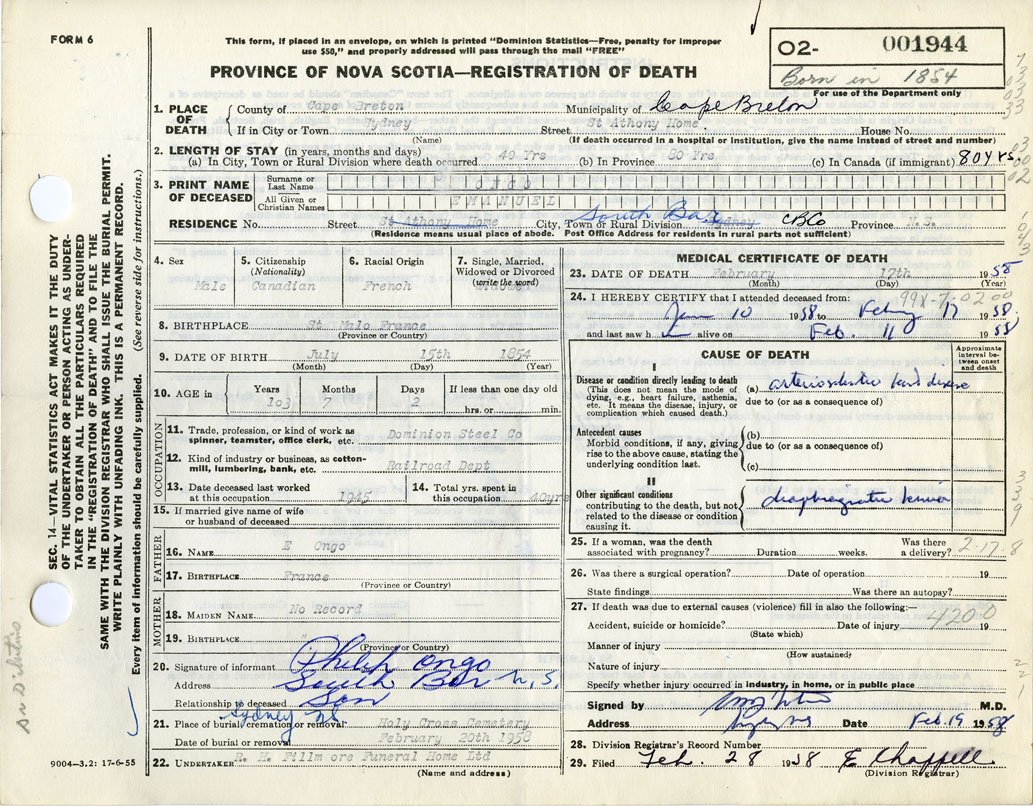 FORM 6
This form, if placed in an envelope, on which is printed "Dominion Statistics—Free, penalty for improper
use $50," and properly addressed will pass through the mail "FREE"
PROVINCE OF NOVA SCOTIA—REGISTRATION OF DEATH
O2- 001944
Born in 1854
For use of the Department only
1. PLACE OF DEATH
County of Cape Breton Municipality of Cape Breton
If in City or Town Sydney Street St Athony Home House No.
(Name) (If death occurred in a hospital or institution, give the name instead of street and number)
2. LENGTH OF STAY (in years, months and days)
(a) In City, Town or Rural Division where death occurred 40 Yrs (b) In Province 80 Yrs (c) In Canada (if immigrant) 80 Yrs.
3. PRINT NAME OF DECEASED
Surname or Last Name ONGO
All Given or Christian Names EMANUEL
RESIDENCE No. Street St Athony Home City, Town or Rural Division South Bar Sydney CBCo Province N.S.
(Residence means usual place of abode. Post Office Address for residents in rural parts not sufficient)
4. Sex Male
5. Citizenship (Nationality) Canadian
6. Racial Origin French
7. Single, Married, Widowed or Divorced (write the word) Widower
8. BIRTHPLACE St Malo France
(Province or Country)
9. DATE OF BIRTH July 15th 1854
(Month) (Day) (Year)
10. AGE in Years 103 Months 7 Days 2 If less than one day old hrs. or min.
OCCUPATION
11. Trade, profession, or kind of work as spinner, teamster, office clerk, etc. Dominion Steel Co
12. Kind of industry or business, as cotton-mill, lumbering, bank, etc. Railroad Dept
13. Date deceased last worked at this occupation 1945
14. Total yrs. spent in this occupation 40yrs
15. If married give name of wife or husband of deceased
FATHER
16. NAME E Ongo
17. BIRTHPLACE France
(Province or Country)
MOTHER
18. MAIDEN NAME No Record
19. BIRTHPLACE "
(Province or Country)
20. Signature of informant Philip Ongo
Address South Bar N.S.
Relationship to deceased Son
Sydney NS
21. Place of burial, cremation or removal Holy Cross Cemetery
Date of burial or removal February 20th 1958
22. UNDERTAKER H. H. Fillmore Funeral Home Ltd
(Name and address)
9004—3.2: 17-6-55
MEDICAL CERTIFICATE OF DEATH
23. DATE OF DEATH February 17th 1958
(Month) (Day) (Year)
24. I HEREBY CERTIFY that I attended deceased from:
99X-7-02 00
Jan 10 1958 to Feby 17 1958
and last saw h alive on Feb. 11 1958
CAUSE OF DEATH
Approximate interval between onset and death
I
Disease or condition directly leading to death
(This does not mean the mode of dying, e.g., heart failure, asthenia, etc. It means the disease, injury, or complication which caused death.)
(a) arteriosclerotic heart disease
due to (or as a consequence of)
Antecedent causes
Morbid conditions, if any, giving rise to the above cause, stating the underlying condition last.
(b)
due to (or as a consequence of)
(c)
II
Other significant conditions
contributing to the death, but not related to the disease or condition causing it.
diaphragmatic hernia
25. If a woman, was the death associated with pregnancy? Duration weeks. Was there a delivery?
2-17-8
26. Was there a surgical operation? Date of operation 19
State findings Was there an autopsy?
27. If death was due to external causes (violence) fill in also the following:—
4200
Accident, suicide or homicide? Date of injury 19
(State which)
Manner of injury
(How sustained)
Nature of injury
Specify whether injury occurred in industry, in home, or in public place
Signed by M.D.
Address Date Feb. 19 1958
28. Division Registrar's Record Number
29. Filed Feb. 28 1958 E Chappell
(Division Registrar)
SEC. 14—VITAL STATISTICS ACT MAKES IT THE DUTY
OF THE UNDERTAKER OR PERSON ACTING AS UNDER-
TAKER TO OBTAIN ALL THE PARTICULARS REQUIRED
IN THE "REGISTRATION OF DEATH" AND TO FILE THE
SAME WITH THE DIVISION REGISTRAR WHO SHALL ISSUE THE BURIAL PERMIT.
WRITE PLAINLY WITH UNFADING INK. THIS IS A PERMANENT RECORD.
Every item of information should be carefully supplied. (See reverse side for instructions.)